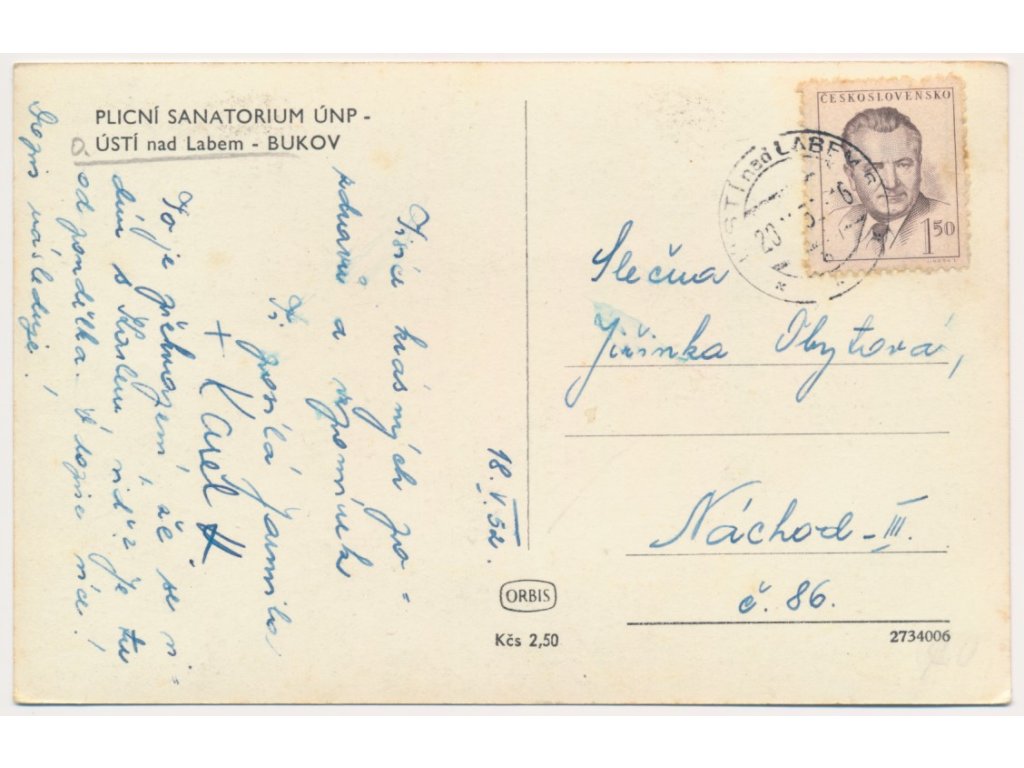 PLICNÍ SANATORIUM ÚNP -
ÚSTÍ nad Labem - BUKOV
18. V. 52.
Tisíc krásných po=
zdravů a vzpomínek
Ti posílá Jarmila
+ Karel
To je překvapení, že se vi=
dím s Karlem, viď? Je tu
od pondělka. V více!
Dopis následuje!
ČESKOSLOVENSKO
1.50
ÚSTÍ nad LABEM
20
Slečna
Jiřinka Obytová,
Náchod-III.
č. 86.
ORBIS
Kčs 2,50
2734006